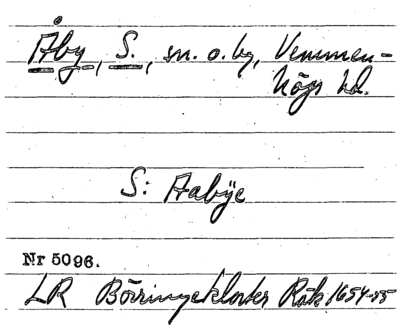 Åby, S. sn. o. by, Vemmen-
högs hd.
S: Aabÿe
Nr 5096.
LR Börringekloster Räk 1654-55